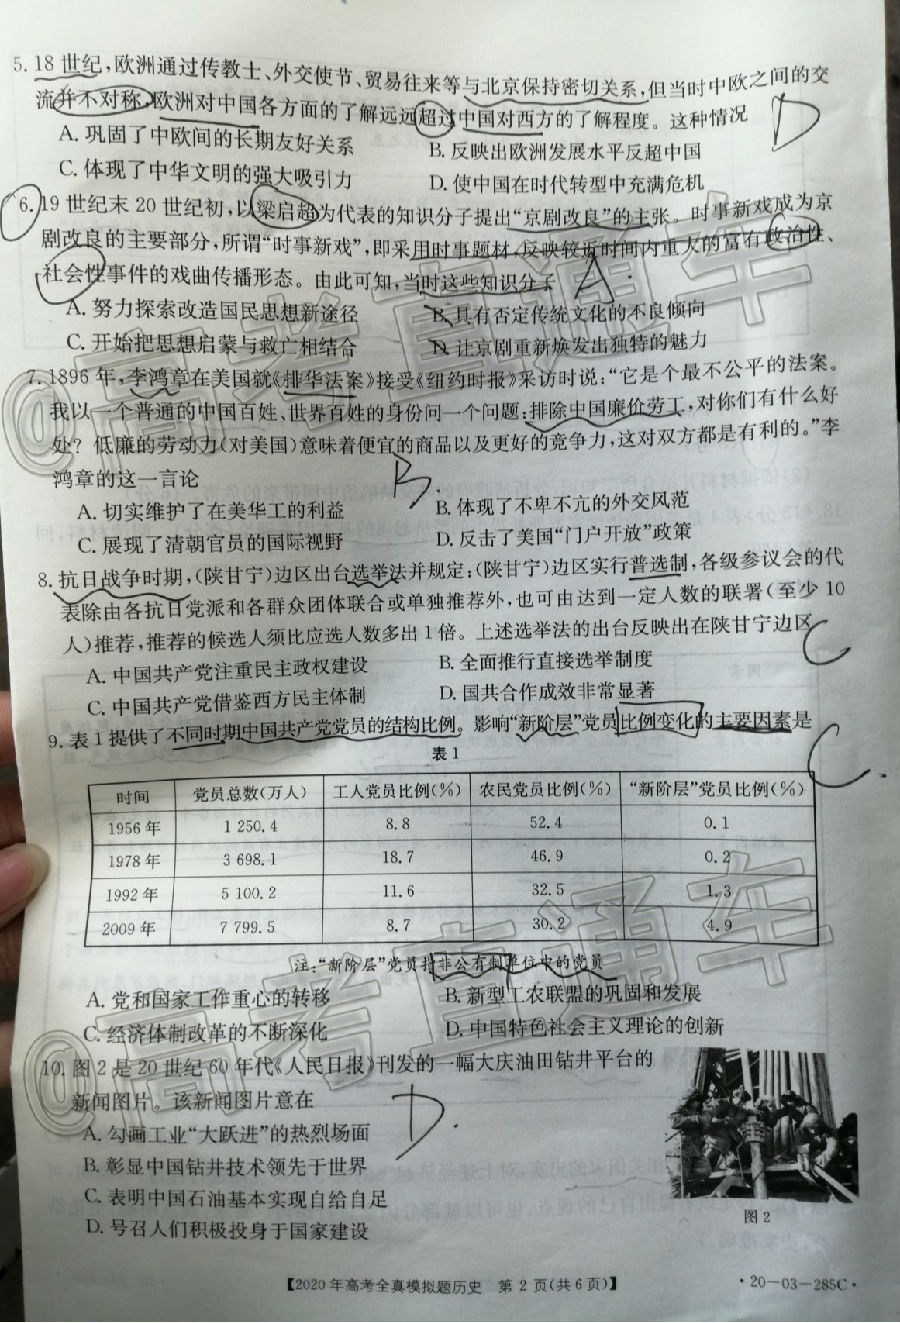 5. 18 世纪,欧洲通过传教士、外交使节、贸易往来等与北京保持密切关系,但当时中欧之间的交
流并不对称,欧洲对中国各方面的了解远远超过中国对西方的了解程度。这种情况
D
A. 巩固了中欧间的长期友好关系
B. 反映出欧洲发展水平反超中国
C. 体现了中华文明的强大吸引力
D. 使中国在时代转型中充满危机
6. 19 世纪末 20 世纪初,以梁启超为代表的知识分子提出“京剧改良”的主张。时事新戏成为京
剧改良的主要部分,所谓“时事新戏”,即采用时事题材,反映较近时间内重大的富有政治性、
社会性事件的戏曲传播形态。由此可知,当时这些知识分子
A.
A. 努力探索改造国民思想新途径
B. 具有否定传统文化的不良倾向
C. 开始把思想启蒙与救亡相结合
D. 让京剧重新焕发出独特的魅力
7. 1896 年,李鸿章在美国就《排华法案》接受《纽约时报》采访时说:“它是个最不公平的法案。
我以一个普通的中国百姓、世界百姓的身份问一个问题:排除中国廉价劳工,对你们有什么好
处？低廉的劳动力(对美国)意味着便宜的商品以及更好的竞争力,这对双方都是有利的。”李
鸿章的这一言论
B.
A. 切实维护了在美华工的利益
B. 体现了不卑不亢的外交风范
C. 展现了清朝官员的国际视野
D. 反击了美国“门户开放”政策
8. 抗日战争时期,(陕甘宁)边区出台选举法并规定:(陕甘宁)边区实行普选制,各级参议会的代
表除由各抗日党派和各群众团体联合或单独推荐外,也可由达到一定人数的联署(至少 10
人)推荐,推荐的候选人须比应选人数多出 1 倍。上述选举法的出台反映出在陕甘宁边区
C
A. 中国共产党注重民主政权建设
B. 全面推行直接选举制度
C. 中国共产党借鉴西方民主体制
D. 国共合作成效非常显著
9. 表 1 提供了不同时期中国共产党党员的结构比例。影响“新阶层”党员比例变化的主要因素是
C.
表 1
时间 党员总数(万人) 工人党员比例(%) 农民党员比例(%) “新阶层”党员比例(%)
1956 年 1 250.4 8.8 52.4 0.1
1978 年 3 698.1 18.7 46.9 0.2
1992 年 5 100.2 11.6 32.5 1.3
2009 年 7 799.5 8.7 30.2 4.9
注:“新阶层”党员指非公有制单位中的党员
A. 党和国家工作重心的转移
B. 新型工农联盟的巩固和发展
C. 经济体制改革的不断深化
D. 中国特色社会主义理论的创新
10. 图 2 是 20 世纪 60 年代《人民日报》刊发的一幅大庆油田钻井平台的
新闻图片。该新闻图片意在
D.
A. 勾画工业“大跃进”的热烈场面
B. 彰显中国钻井技术领先于世界
C. 表明中国石油基本实现自给自足
D. 号召人们积极投身于国家建设
图 2
【2020 年高考全真模拟题历史 第 2 页(共 6 页)】
·20-03-285C·
@高考直通车
@高考直通车